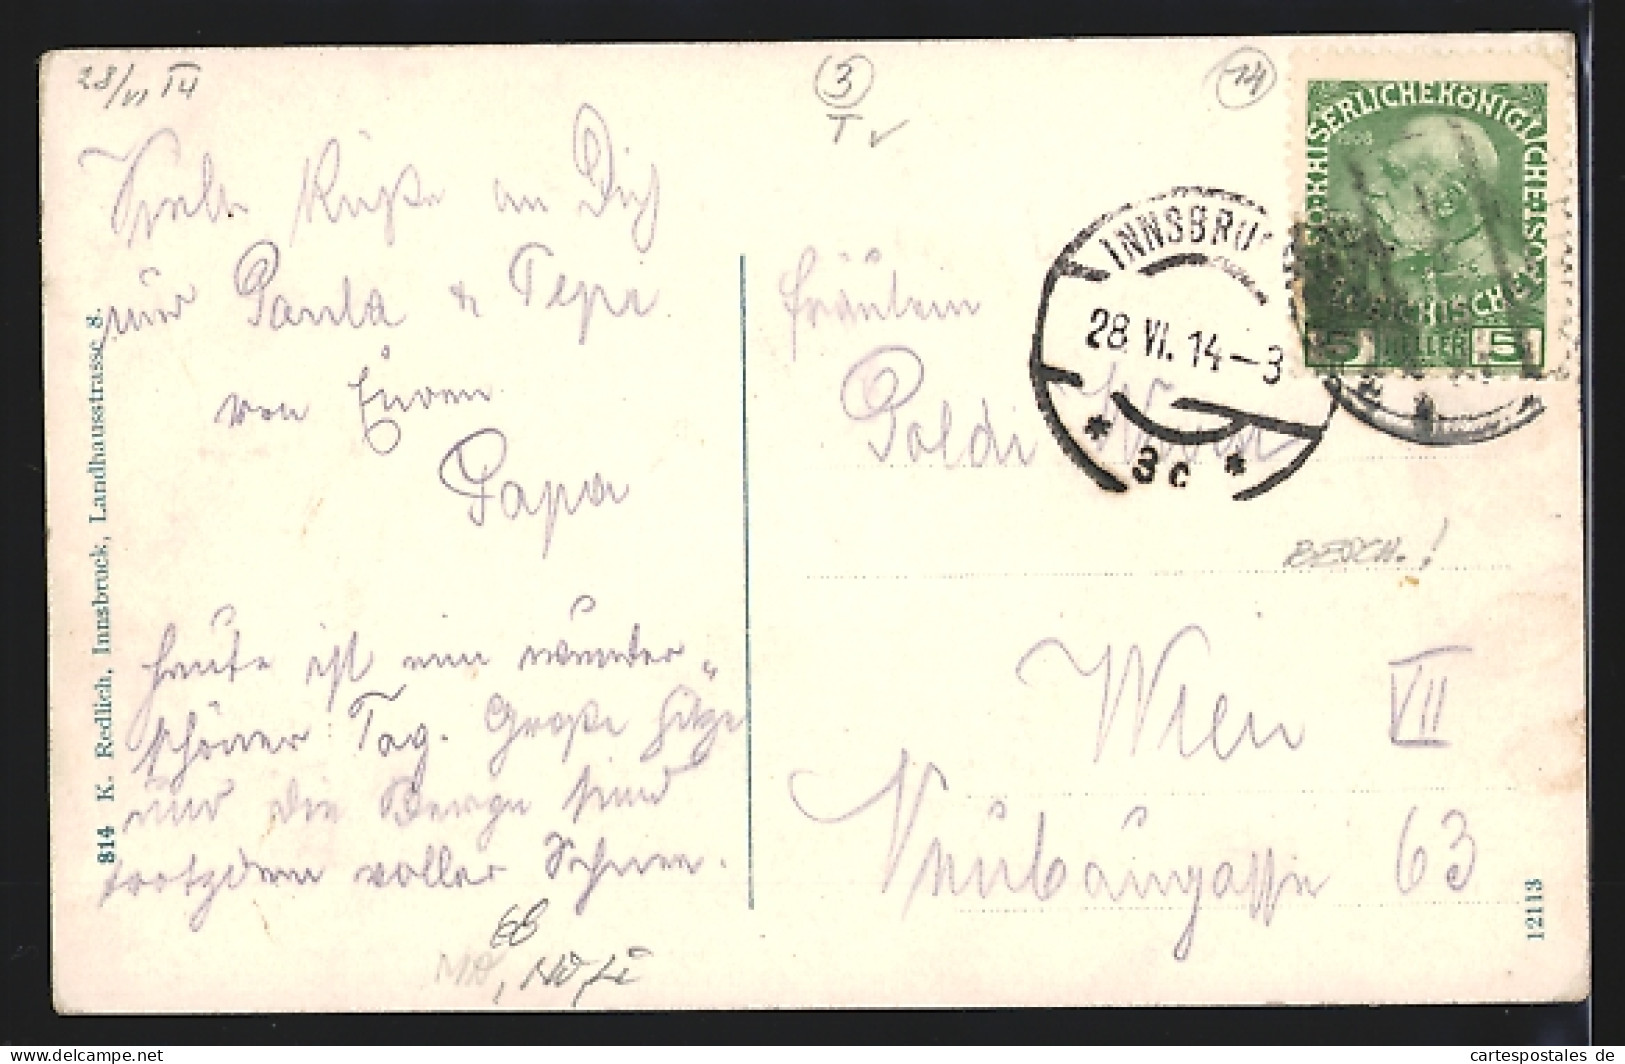 28/VI 14
3
T
14
Viele Küße an Dich
nur Paula & Pepi
von Eürem
Papa
heute ist ein wunder„
schöner Tag. Große Hitze
nur die Berge sind
trotzdem voller Schnee.
814 K. Redlich, Innsbruck, Landhausstrasse 8.
Fräulein
Poldi
Wien VII
Neubaugasse 63
BESCH.!
12113
KAISERLICHE KÖNIGLICHE ÖSTERREICHISCHE POST
1908
5 HELLER 5
INNSBRUCK
28. VI. 14 – 3
* 3c *
cartespostales.de